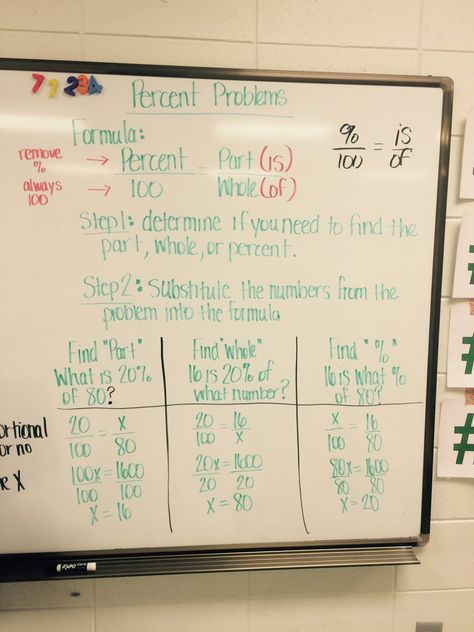 7 1 2 3 4
Percent Problems
Formula:
remove % → Percent = Part (is)
always 100 → 100 Whole (of)
% = is
100 of
Step 1: determine if you need to find the
part, whole, or percent.
Step 2: Substitute the numbers from the
problem into the formula
Find "Part"
What is 20%
of 80?
20 = x
100 80
100x = 1600
100 100
x = 16
Find "Whole"
16 is 20% of
what number?
20 = 16
100 x
20x = 1600
20 20
x = 80
Find "%"
16 is what %
of 80?
x = 16
100 80
80x = 1600
80 80
x = 20
ortional
or no
e x
#
#
#
EXPO